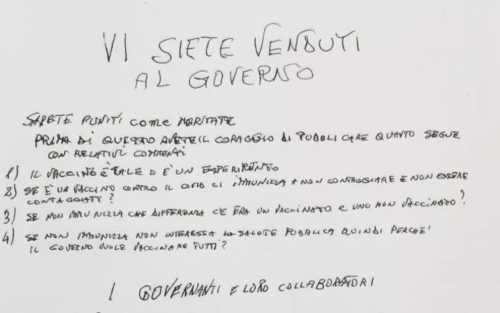 VI SIETE VENDUTI
AL GOVERNO
SARETE PUNITI COME MERITATE
PRIMA DI QUESTO AVETE IL CORAGGIO DI PUBBLICARE QUANTO SEGUE
CON RELATIVI COMMENTI
1) IL VACCINO È TALE O È UN ESPERIMENTO
2) SE È UN VACCINO CONTRO IL COVID CI IMMUNIZZA + NON CONTAGGIARE E NON ESSERE
CONTAGGIATI?
3) SE NON IMMUNIZZA CHE DIFFERENZA C'È FRA UN VACCINATO E UNO NON VACCINATO?
4) SE NON IMMUNIZZA NON INTERESSA LA SALUTE PUBBLICA QUINDI PERCHÉ
IL GOVERNO VUOLE VACCINARE TUTTI?
I GOVERNANTI E LORO COLLABORATORI